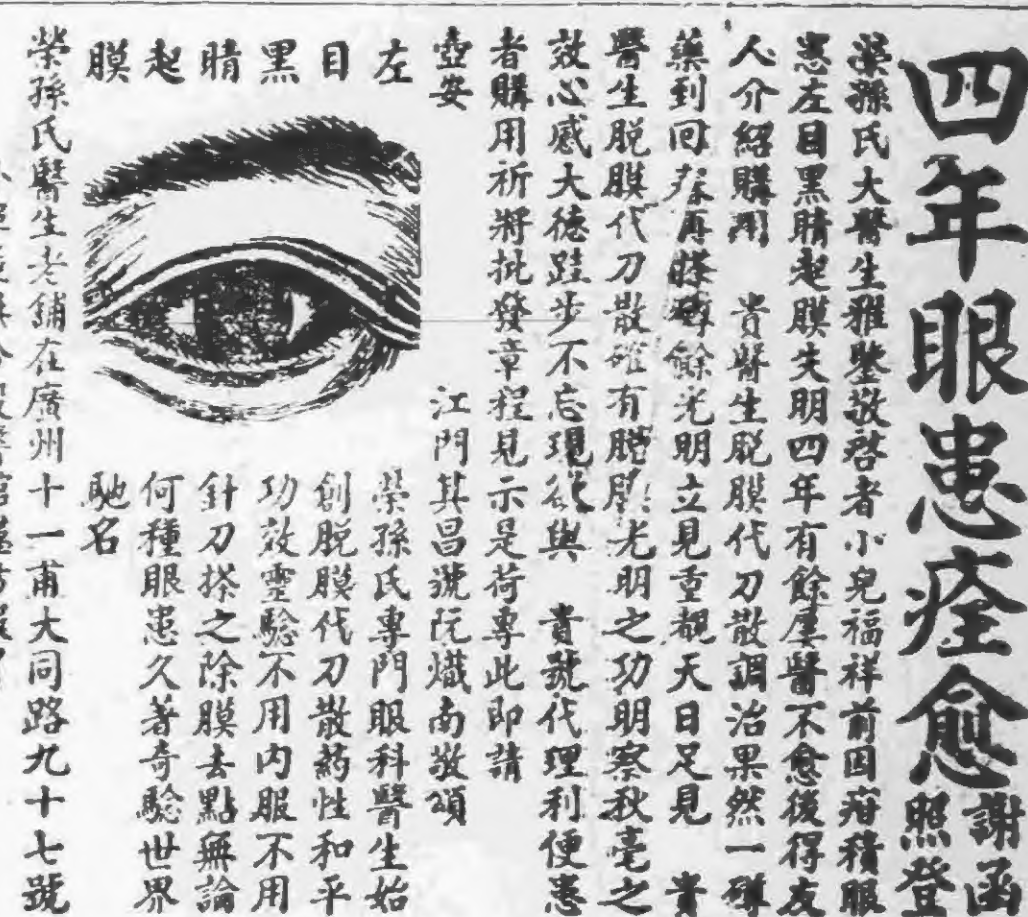 四年眼患痊愈
謝函照登
榮孫氏大醫生雅鑒敬啓者小兒福祥前因疳積眼
患左目黑睛起膜失明四年有餘屢醫不愈後得友
人介紹購用 貴醫生脱膜代刀散調治果然一磚
藥到回春再搽磚餘光明立見重覩天日足見 貴
醫生脱膜代刀散確有 光明之功明察秋毫之
效心感大德跬步不忘現欲與 貴號代理利便患
者購用祈將批發章程見示是荷專此即請
壺安 江門其昌號阮熾南敬頌
左目黑睛起膜
榮孫氏專門眼科醫生始
創脱膜代刀散葯性和平
功效靈驗不用内服不用
針刀搽之除膜去點無論
何種眼患久著奇驗世界
馳名
榮孫氏醫生老舖在廣州十一甫大同路九十七號